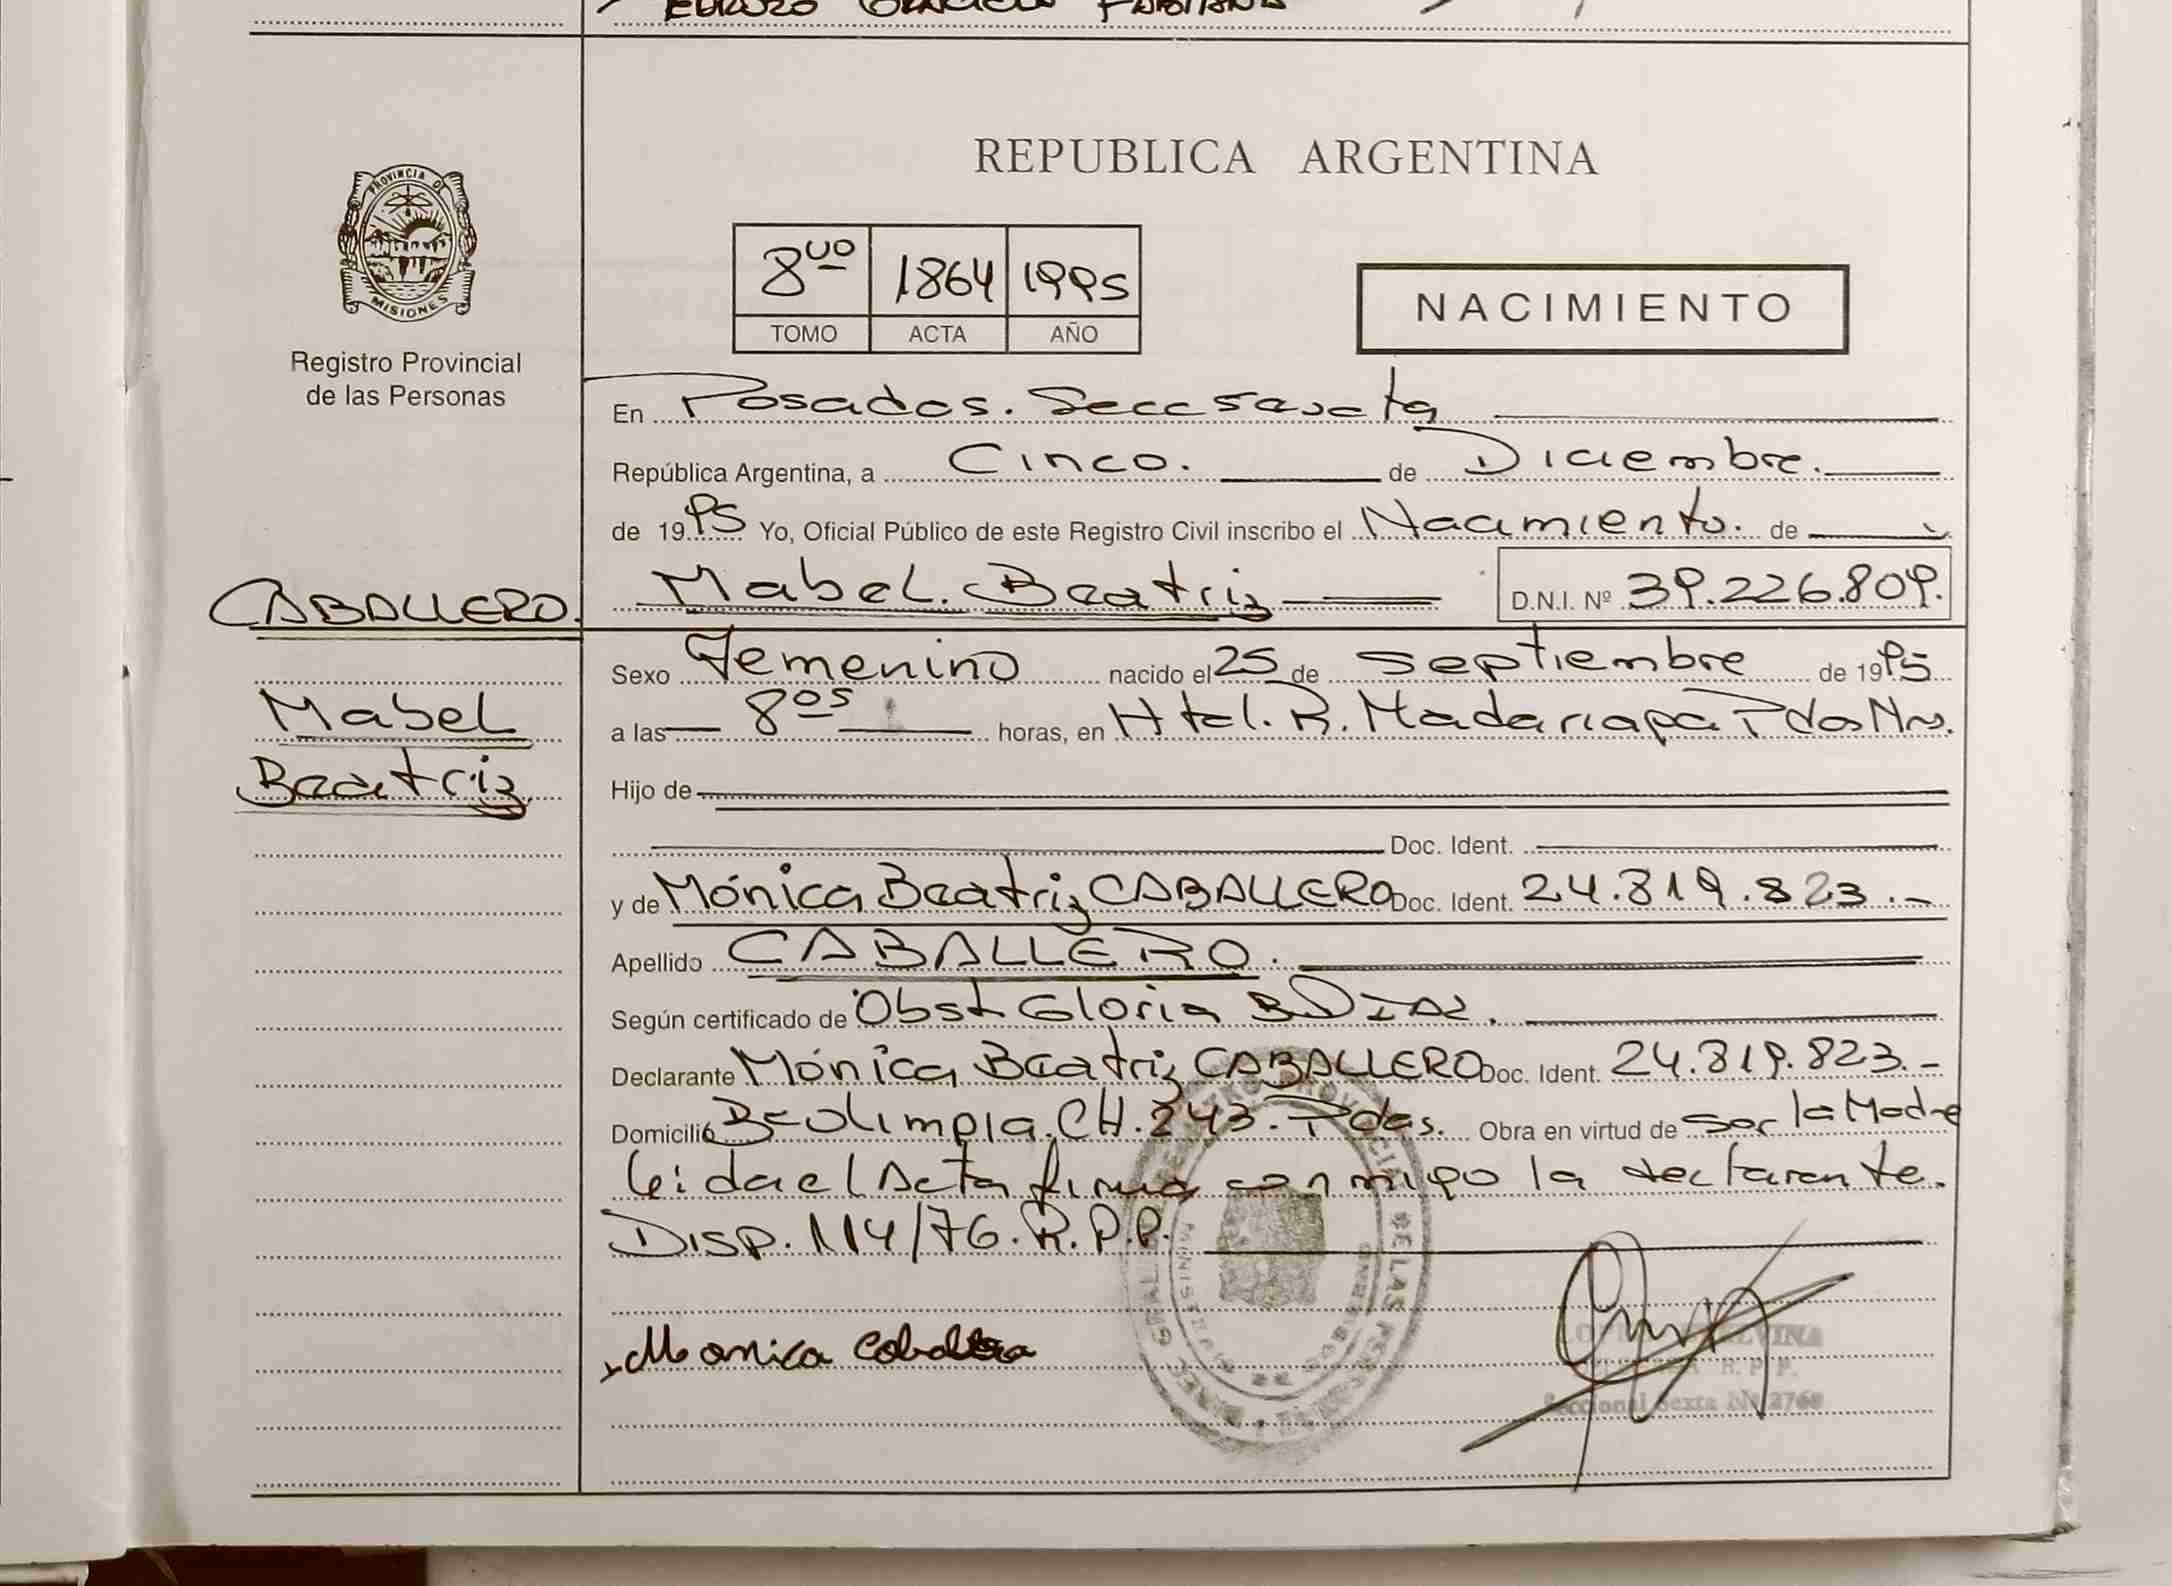 PROVINCIA DE
MISIONES
Registro Provincial
de las Personas
REPUBLICA ARGENTINA
8vo 1864 1995
TOMO ACTA AÑO
NACIMIENTO
En Posadas. Secc sexta
República Argentina, a Cinco. de Diciembre.
de 1995 Yo, Oficial Público de este Registro Civil inscribo el Nacimiento. de
CABALLERO. Mabel. Beatriz D.N.I. Nº 39.226.809.
Sexo Femenino nacido el 25 de septiembre de 1995
Mabel
a las 8os horas, en Htal. R. Madariaga Pdas Mns.
Beatriz
Hijo de
Doc. Ident.
y de Mónica Beatriz CABALLERO Doc. Ident. 24.819.823.-
Apellido CABALLERO.
Según certificado de Obst Gloria B DIAZ.
Declarante Mónica Beatriz CABALLERO Doc. Ident. 24.819.823.-
Domicilio Bº Olimpia. CH. 243. Pdas. Obra en virtud de ser la Madre
leida el Acta firma conmigo la declarante.
Disp. 114/76. R.P.P.
Monica Caballero
R. P. P.
Seccional Sexta